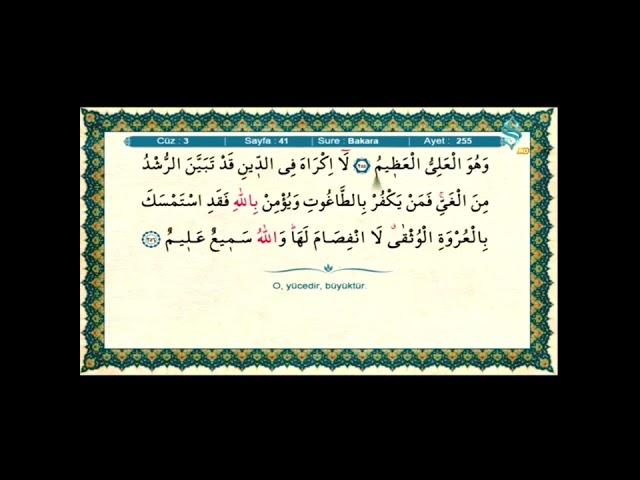 Cüz : 3 Sayfa : 41 Sure : Bakara Ayet : 255
وَهُوَ الْعَلِيُّ الْعَظ۪يمُ ﴿٢٥٥﴾ لَٓا اِكْرَاهَ فِي الدّ۪ينِ قَدْ تَبَيَّنَ الرُّشْدُ
مِنَ الْغَيِّۚ فَمَنْ يَكْفُرْ بِالطَّاغُوتِ وَيُؤْمِنْ بِاللّٰهِ فَقَدِ اسْتَمْسَكَ
بِالْعُرْوَةِ الْوُثْقٰىۗ لَا انْفِصَامَ لَهَاۜ وَاللّٰهُ سَم۪يعٌ عَل۪يمٌ ﴿٢٥٦﴾
O, yücedir, büyüktür.
HD